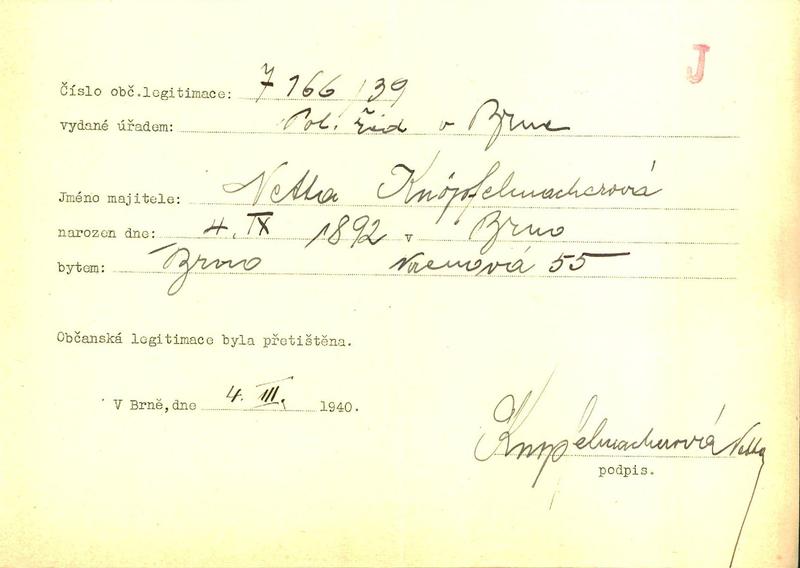 J
Číslo obč.legitimace: 7166/39
vydané úřadem: Pol. řed v Brne
Jméno majitele: Netta Knöpfelmacherová
narozen dne: 4. IX 1892 v Brno
bytem: Brno 55
Občanská legitimace byla přetištěna.
V Brně, dne 4. III. 1940.
Knöpfelmacherová Netta
podpis.